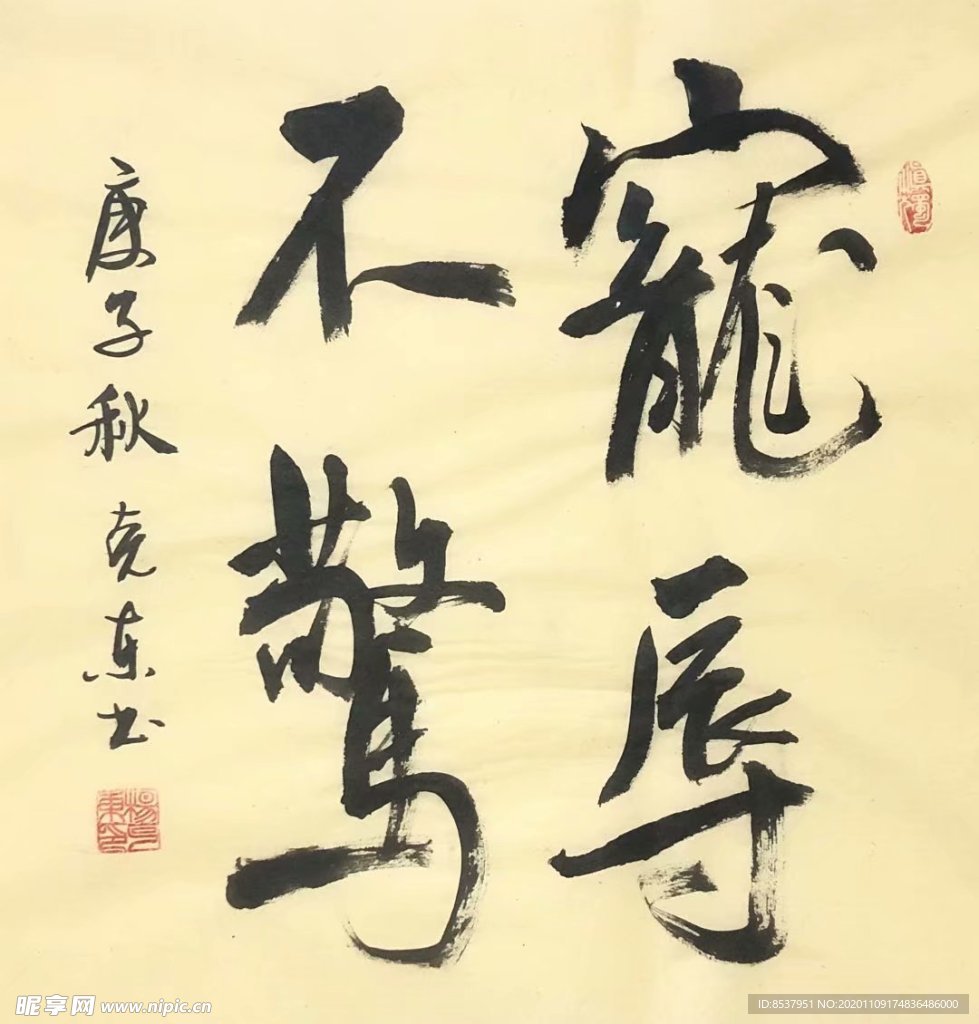 寵辱
不驚
庚子秋 克東书
慎獨
昵享网 www.nipic.cn
ID:8537951 NO:20201109174836486000